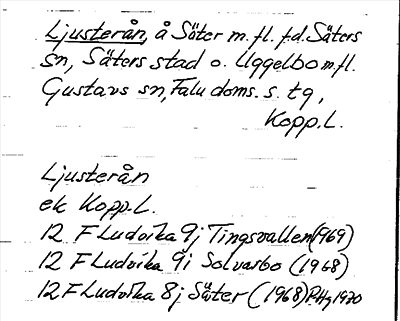 Ljusterån, å Säter m. fl. f.d. Säters
sn, Säters stad o. Uggelbo m.fl.
Gustavs sn, Falu doms. s. tg,
Kopp.L.
Ljusterån
ek Kopp.L.
12 F Ludvika 9j Tingsvallen (1969)
12 F Ludvika 9i Solvarbo (1968)
12 F Ludvika 8j Säter (1968) P.Hg 1970